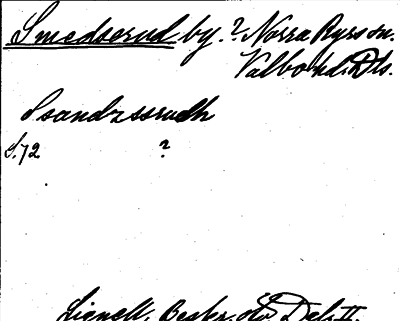 Smedserud by. ? Norra Ryrs sn.
Valbo hd. Dls.
Ssandzssrudh
S. 72 ?
Lignell, Beskr. öv. Dal II.